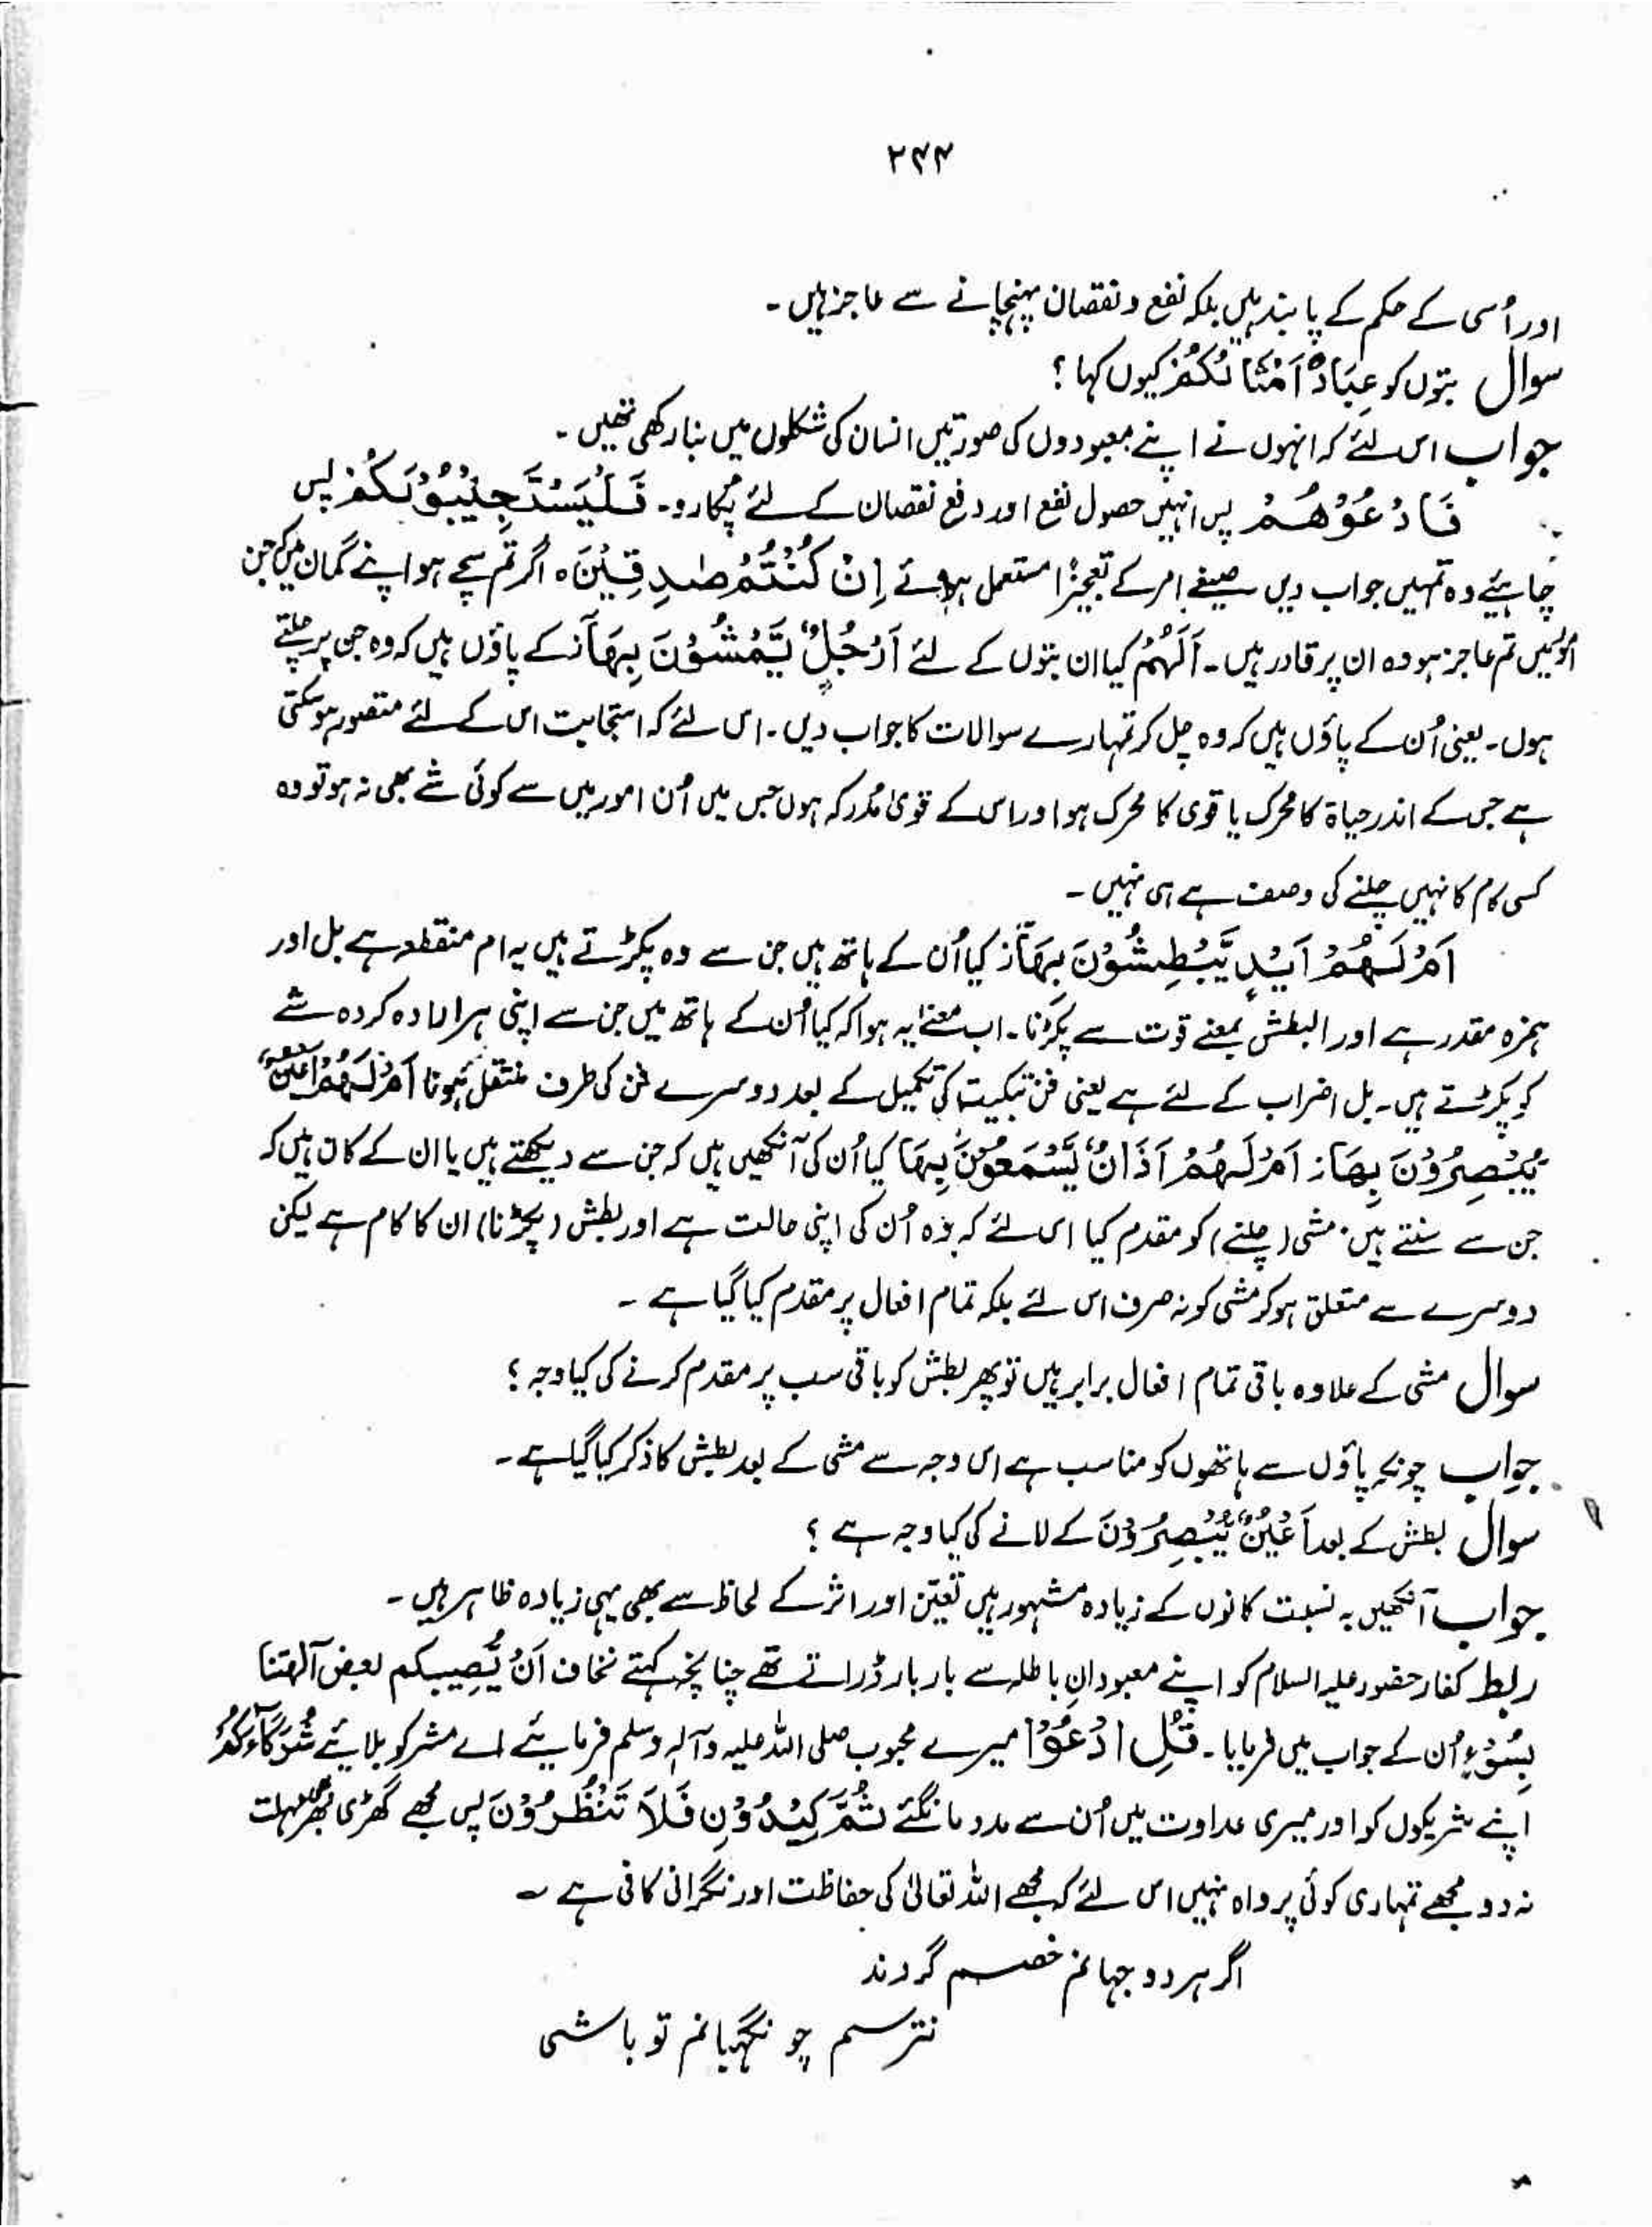 ۲۴۴
اور اُسی کے حکم کے پابند ہیں بلکہ نفع و نقصان پہنچانے سے عاجز ہیں۔
سوال بتوں کو عِبَادٌ اَمْثَالُكُمْ کیوں کہا؟
جواب اس لئے کہ انہوں نے اپنے معبودوں کی صورتیں انسان کی شکلوں میں بنا رکھی تھیں۔
فَادْعُوْهُمْ پس انہیں حصول نفع اور دفع نقصان کے لئے پکارو۔ فَلْيَسْتَجِيْبُوْا لَكُمْ پس
چاہیئے وہ تمہیں جواب دیں صیغے امر کے تعجیزاً مستعمل ہوئے اِنْ كُنْتُمْ صٰدِقِيْنَ ہ اگر تم سچے ہو اپنے گمان میں کہ جن
امور میں تم عاجز ہو وہ ان پر قادر ہیں۔ اَلَهُمْ کیا ان بتوں کے لئے اَرْجُلٌ يَّمْشُوْنَ بِهَآ ز کے پاؤں ہیں کہ وہ جن پر چلتے
ہوں۔ یعنی اُن کے پاؤں ہیں کہ وہ چل کر تمہارے سوالات کا جواب دیں۔ اس لئے کہ استجابت اس کے لئے متصور ہو سکتی
ہے جس کے اندر حیاۃ کا محرک یا قوی کا محرک ہو اور اس کے قویٰ مُدرکہ ہوں جس میں اُن امور میں سے کوئی شے بھی نہ ہو تو وہ
کسی کام کا نہیں چلنے کی وصف ہے ہی نہیں۔
اَمْ لَهُمْ اَيْدٍ يَّبْطِشُوْنَ بِهَآ ز کیا اُن کے ہاتھ ہیں جن سے وہ پکڑتے ہیں یہ ام منقطعہ ہے بل اور
ہمزہ مقدر ہے اور البطش بمعنے قوت سے پکڑنا۔ اب معنےٰ یہ ہوا کہ کیا اُن کے ہاتھ ہیں جن سے اپنی ہر ارادہ کردہ شے
کو پکڑتے ہیں۔ بل اضراب کے لئے ہے یعنی فن تبکیت کی تکمیل کے بعد دوسرے فن کی طرف منتقل ہونا اَمْ لَهُمْ اَعْيُنٌ
يُّبْصِرُوْنَ بِهَآ ز اَمْ لَهُمْ اٰذَانٌ يَّسْمَعُوْنَ بِهَا کیا اُن کی آنکھیں ہیں کہ جن سے دیکھتے ہیں یا ان کے کان ہیں کہ
جن سے سنتے ہیں۔ مشی (چلنے) کو مقدم کیا اس لئے کہ وہ اُن کی اپنی حالت ہے اور بطش (پکڑنا) ان کا کام ہے لیکن
دوسرے سے متعلق ہو کر مشی کو نہ صرف اس لئے بلکہ تمام افعال پر مقدم کیا گیا ہے۔
سوال مشی کے علاوہ باقی تمام افعال برابر ہیں تو پھر بطش کو باقی سب پر مقدم کرنے کی کیا وجہ؟
جواب چونکہ پاؤں سے ہاتھوں کو مناسب ہے اس وجہ سے مشی کے بعد بطش کا ذکر کیا گیا ہے۔
سوال بطش کے بعد اَعْيُنٌ يُّبْصِرُوْنَ کے لانے کی کیا وجہ ہے؟
جواب آنکھیں بہ نسبت کانوں کے زیادہ مشہور ہیں تعیّن اور اثر کے لحاظ سے بھی یہی زیادہ ظاہر ہیں۔
ربط کفار حضور علیہ السلام کو اپنے معبودانِ باطلہ سے بار بار ڈراتے تھے چنانچہ کہتے نخاف اَنْ يُّصِيبكم بعض آلهتنا
بِسُوْءٍ اُن کے جواب میں فرمایا۔ قُلِ ادْعُوْا میرے محبوب صلی اللہ علیہ وآلہٖ وسلم فرمایئے اے مشرکو بلایئے شُرَكَآءَكُمْ
اپنے شریکوں کو اور میری عداوت میں اُن سے مدد مانگئے ثُمَّ كِيْدُوْنِ فَلَا تُنْظِرُوْنَ پس مجھے گھڑی بھر مہلت
نہ دو مجھے تمہاری کوئی پرواہ نہیں اس لئے کہ مجھے اللہ تعالیٰ کی حفاظت اور نگرانی کافی ہے۔
اگر ہر دو جہانم خصم گردند
نترسم چو نگہبانم تو باشی